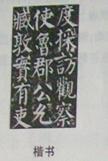 度採訪觀察
使魯郡公允
臧敢實有吏
楷书